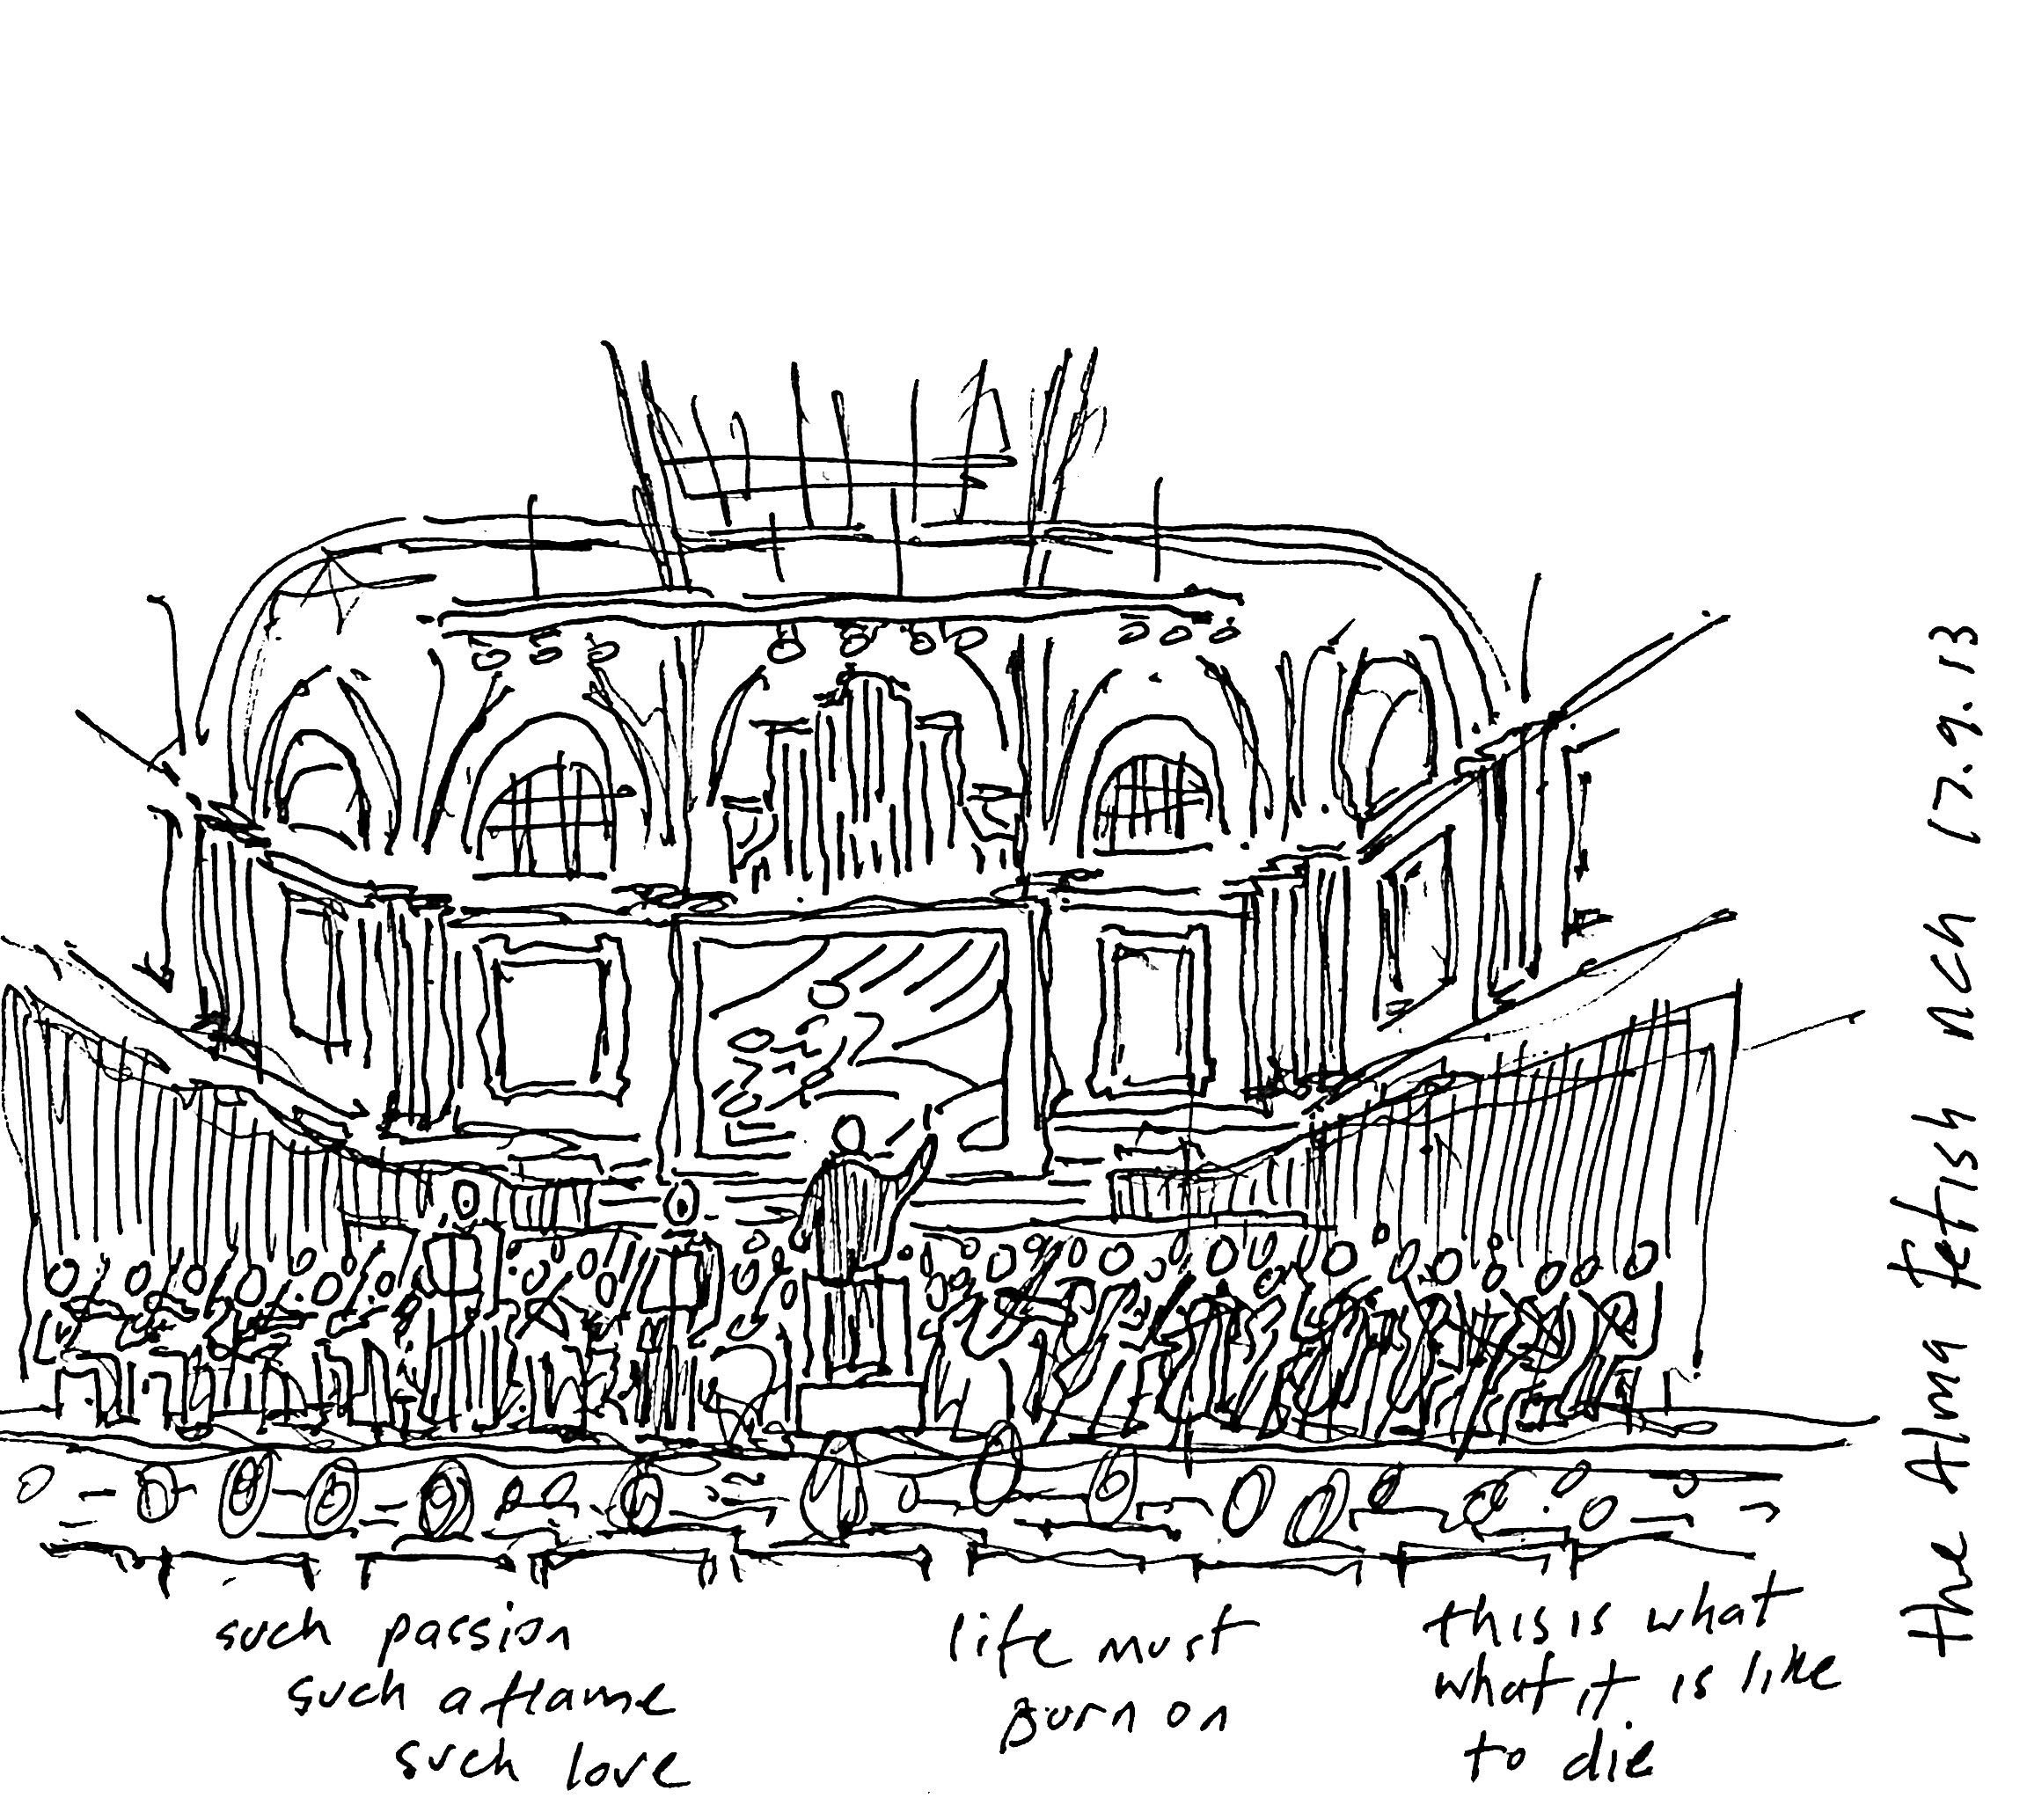 such passion
such a flame
such love
life must
Burn on
this is what
what it is like
to die
The Alma Fetish NCH 17.9.13